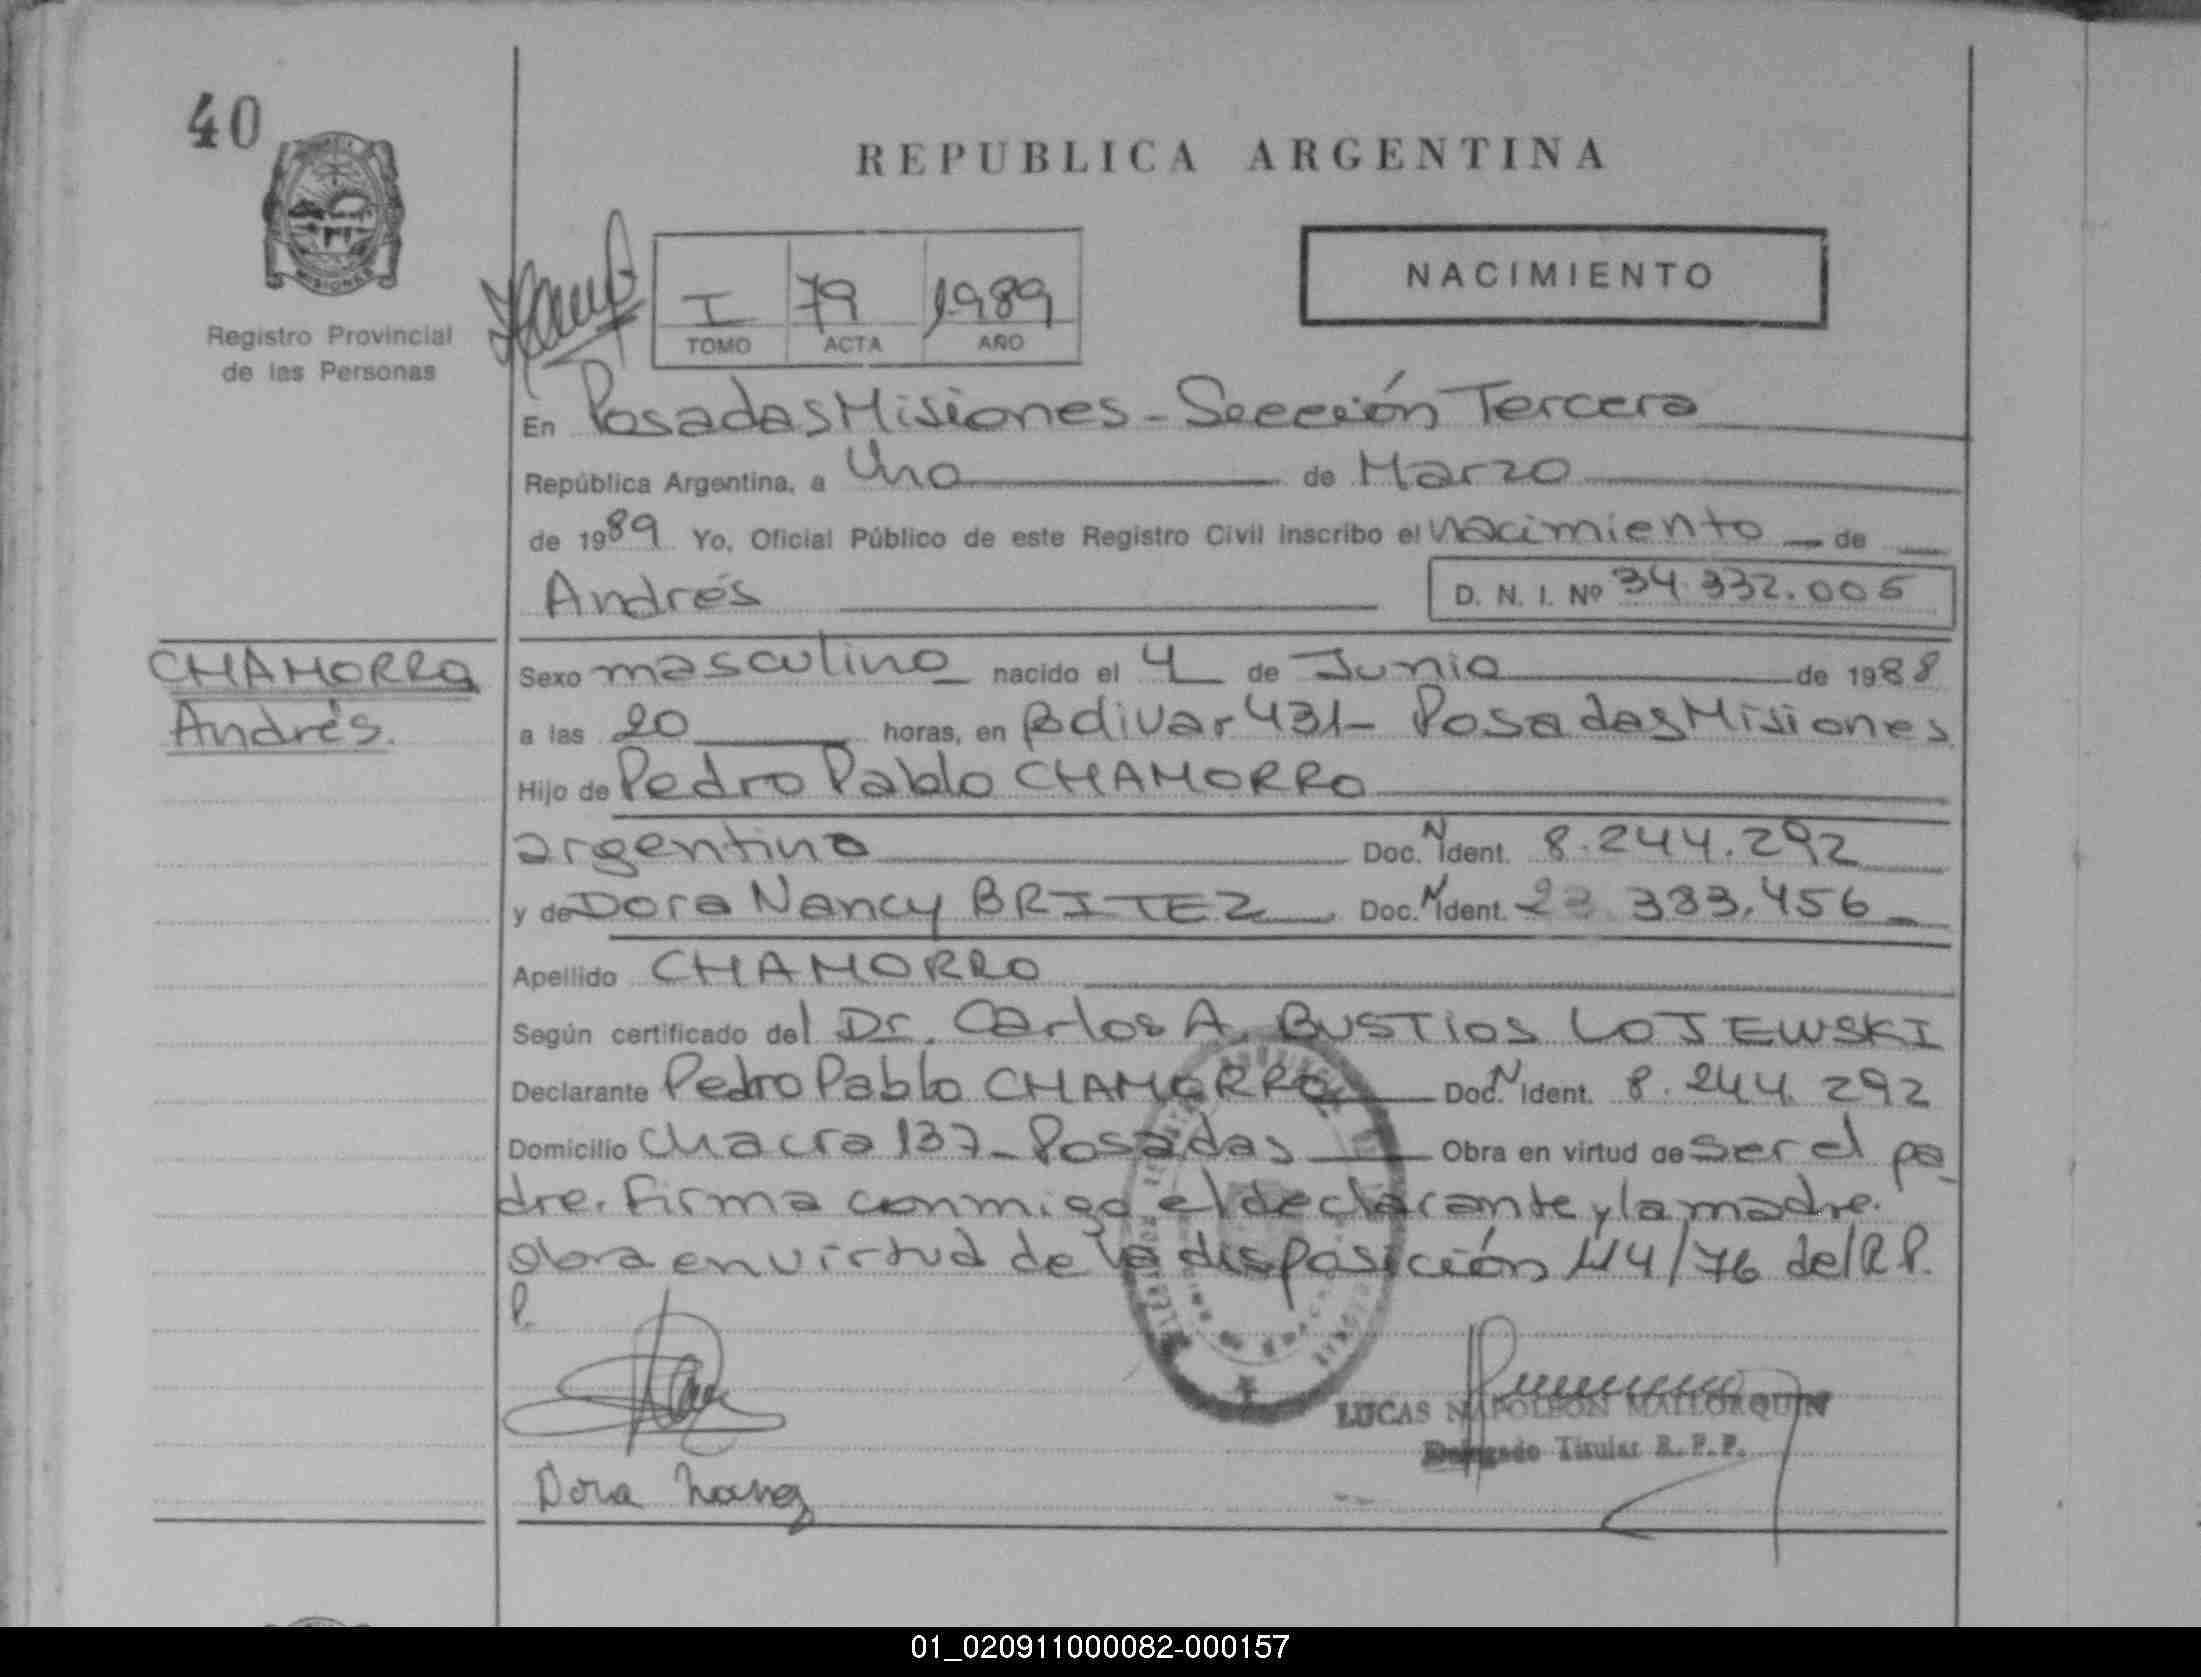 40
REPUBLICA ARGENTINA
MISIONES
Registro Provincial
de las Personas
I 79 1989
TOMO ACTA AÑO
NACIMIENTO
En Posadas Misiones - Sección Tercera
República Argentina, a Uno de Marzo
de 1989 Yo, Oficial Público de este Registro Civil inscribo el nacimiento de
Andrés D. N. I. Nº 34.332.005
CHAMORRO
Andrés.
Sexo masculino nacido el 4 de Junio de 1988
a las 20 horas, en Bolivar 431- Posadas Misiones
Hijo de Pedro Pablo CHAMORRO
argentino Doc. N Ident. 8.244.292
y de Dora Nancy BRITEZ Doc. N Ident. 383.456
Apellido CHAMORRO
Según certificado del Dr. Carlos A. BUSTIOS LOJEWSKI
Declarante Pedro Pablo CHAMORRO Doc. N Ident. 8.244.292
Domicilio Chacra 137 - Posadas Obra en virtud de ser el pa-
dre. Firma conmigo el declarante y la madre.
obra en virtud de la disposición 114/76 del R.P.
P.
LUCAS NAPOLEON MALLORQUIN
Delegado Titular R.P.P.
Dora Nancy
01_020911000082-000157